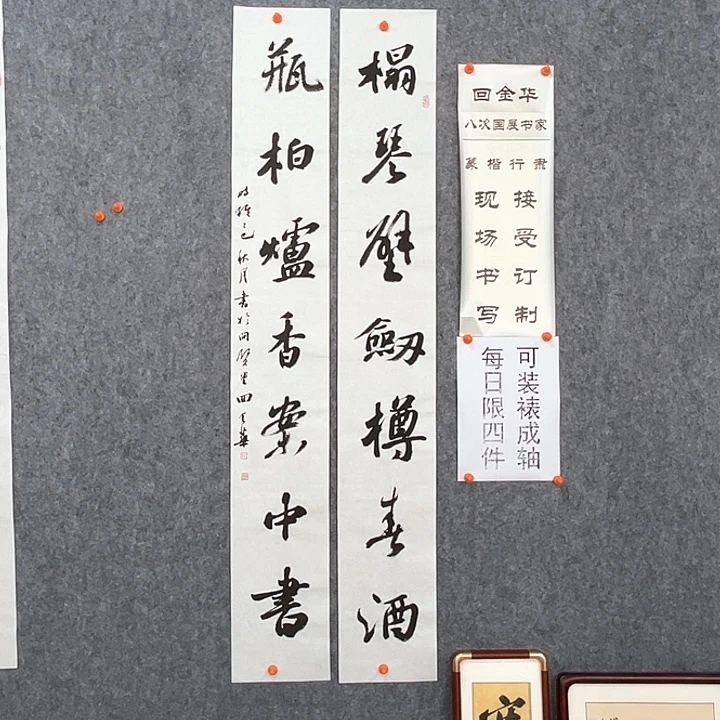 榻琴壁劔樽春酒
瓶柏爐香案中書
時維乙巳秋月書於問賢堂回金華
回金华
八次国展书家
篆楷行隶
接受订制
现场书写
可装裱成轴
每日限四件